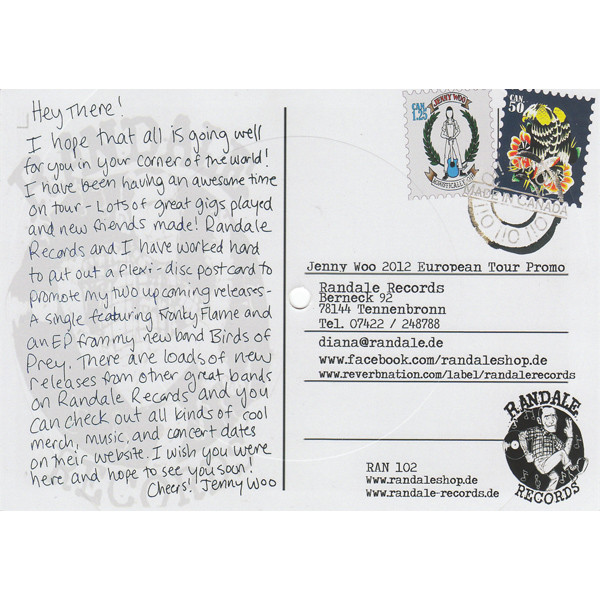 Hey There!
I hope that all is going well
for you in your corner of the world!
I have been having an awesome time
on tour - Lots of great gigs played
and new friends made! Randale
Records and I have worked hard
to put out a flexi-disc postcard to
promote my two upcoming releases-
A single featuring Franky Flame and
an EP from my new band Birds of
Prey. There are loads of new
releases from other great bands
on Randale Records and you
can check out all kinds of cool
merch, music, and concert dates
on their website. I wish you were
here and hope to see you soon!
Cheers!! Jenny Woo
CAN.
1.25
JENNY WOO
ACOUSTICALLY
CAN.
50
MADE IN CANADA
Jenny Woo 2012 European Tour Promo
Randale Records
Berneck 92
78144 Tennenbronn
Tel. 07422 / 248788
diana@randale.de
www.facebook.com/randaleshop.de
www.reverbnation.com/label/randalerecords
RANDALE
RECORDS
RAN 102
www.randaleshop.de
www.randale-records.de